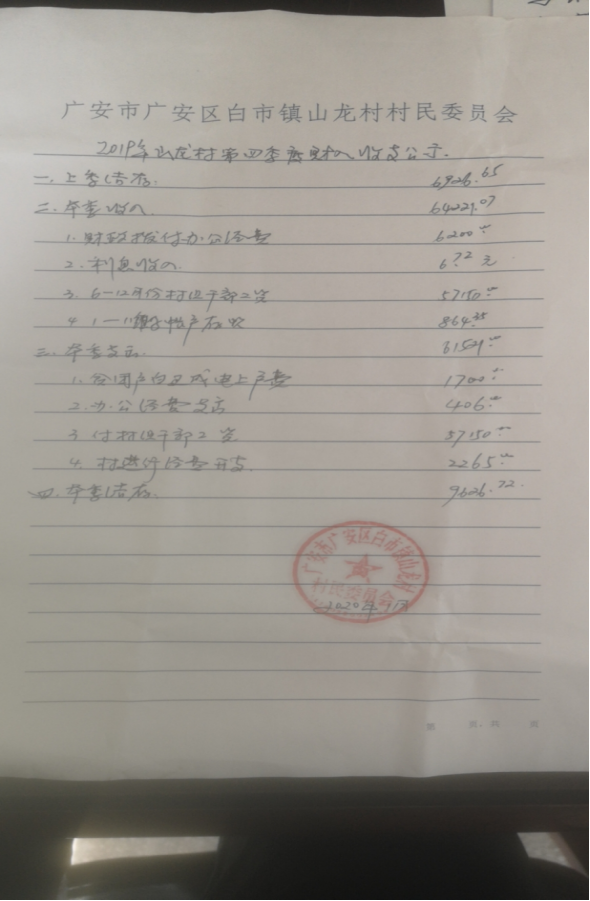 广安市广安区白市镇山龙村村民委员会
2019年山龙村第四季度财务收支公示
一、上季结存 6926.65
二、本季收入 64221.07
1. 财政拨付办公经费 6200.00
2. 利息收入 6.72元
3. 6-12月份村组干部工资 57150.00
4. 864.35
三、本季支出 61521.00
1. 户费 1700.00
2. 办公经费支出 406.00
3. 付村组干部工资 57150.00
4. 村运行经费开支 2265.00
四、本季结存 9626.72
广安市广安区白市镇山龙村
村民委员会
2020年1月
第 页, 共 页